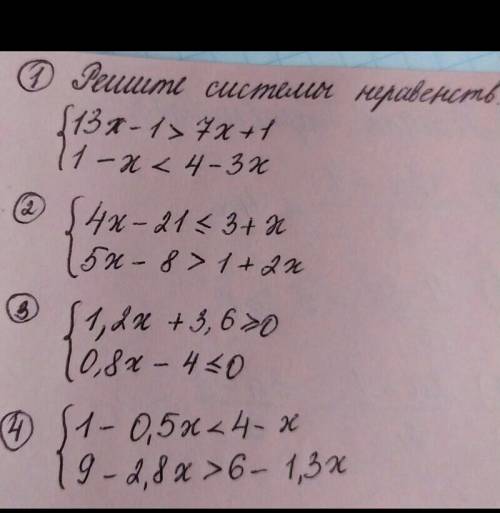 ① Решите системы неравенств
{13x - 1 > 7x + 1
1 - x < 4 - 3x
② {4x - 21 ≤ 3 + x
5x - 8 > 1 + 2x
③ {1,2x + 3,6 ≥ 0
0,8x - 4 ≤ 0
④ {1 - 0,5x < 4 - x
9 - 2,8x > 6 - 1,3x